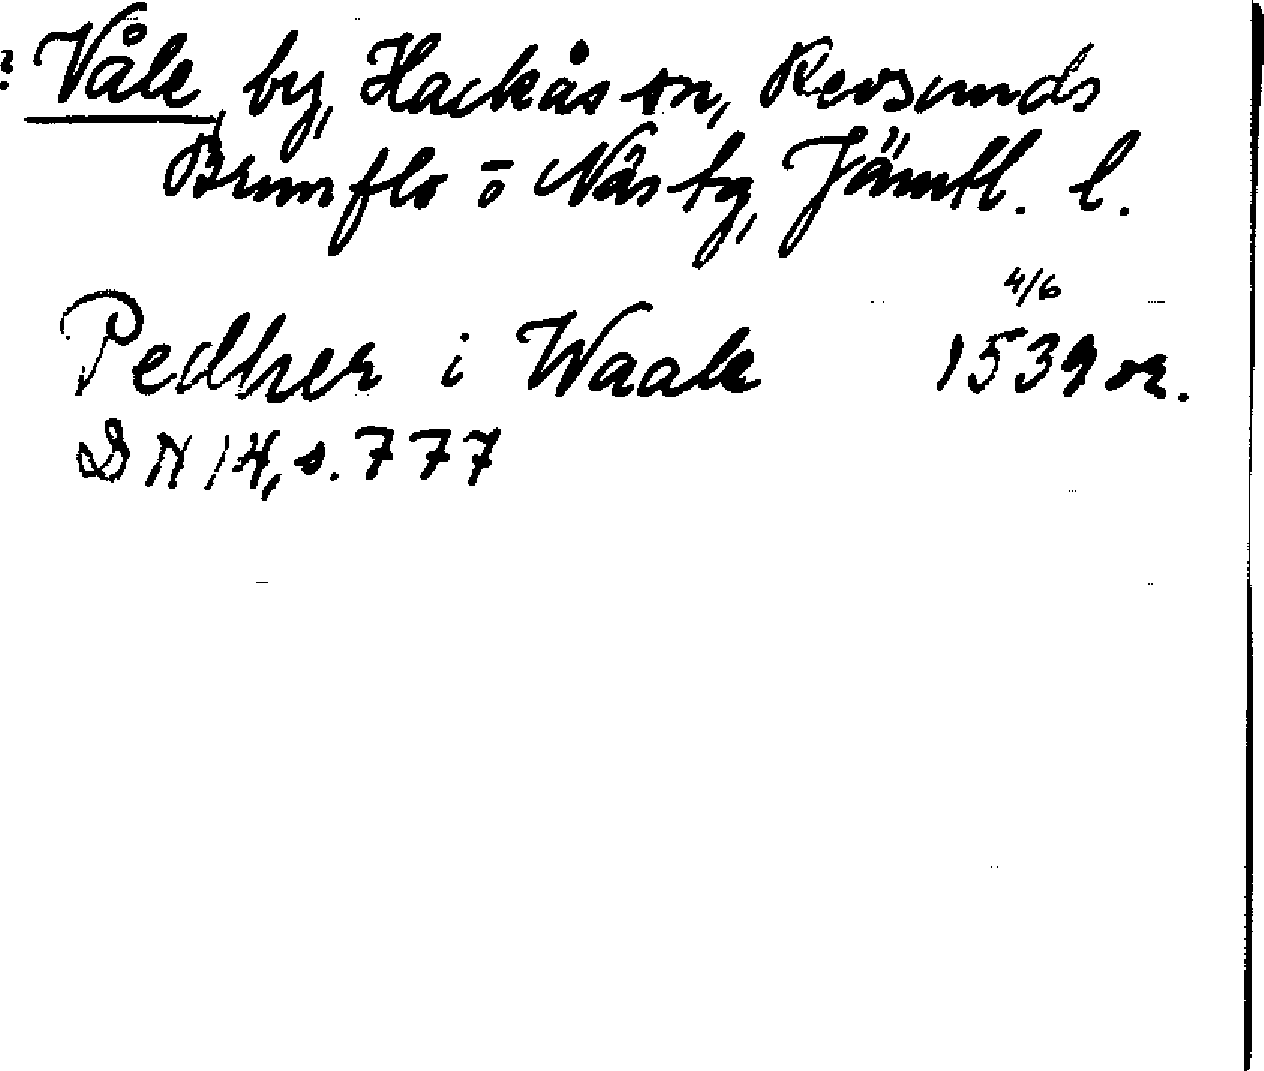 ? Våle by, Hackås sn, Revsunds
Brunflo o Näs tg, Jämtl. l.
4/6
Pedher i Waale 1539 or.
DN 14, s. 777